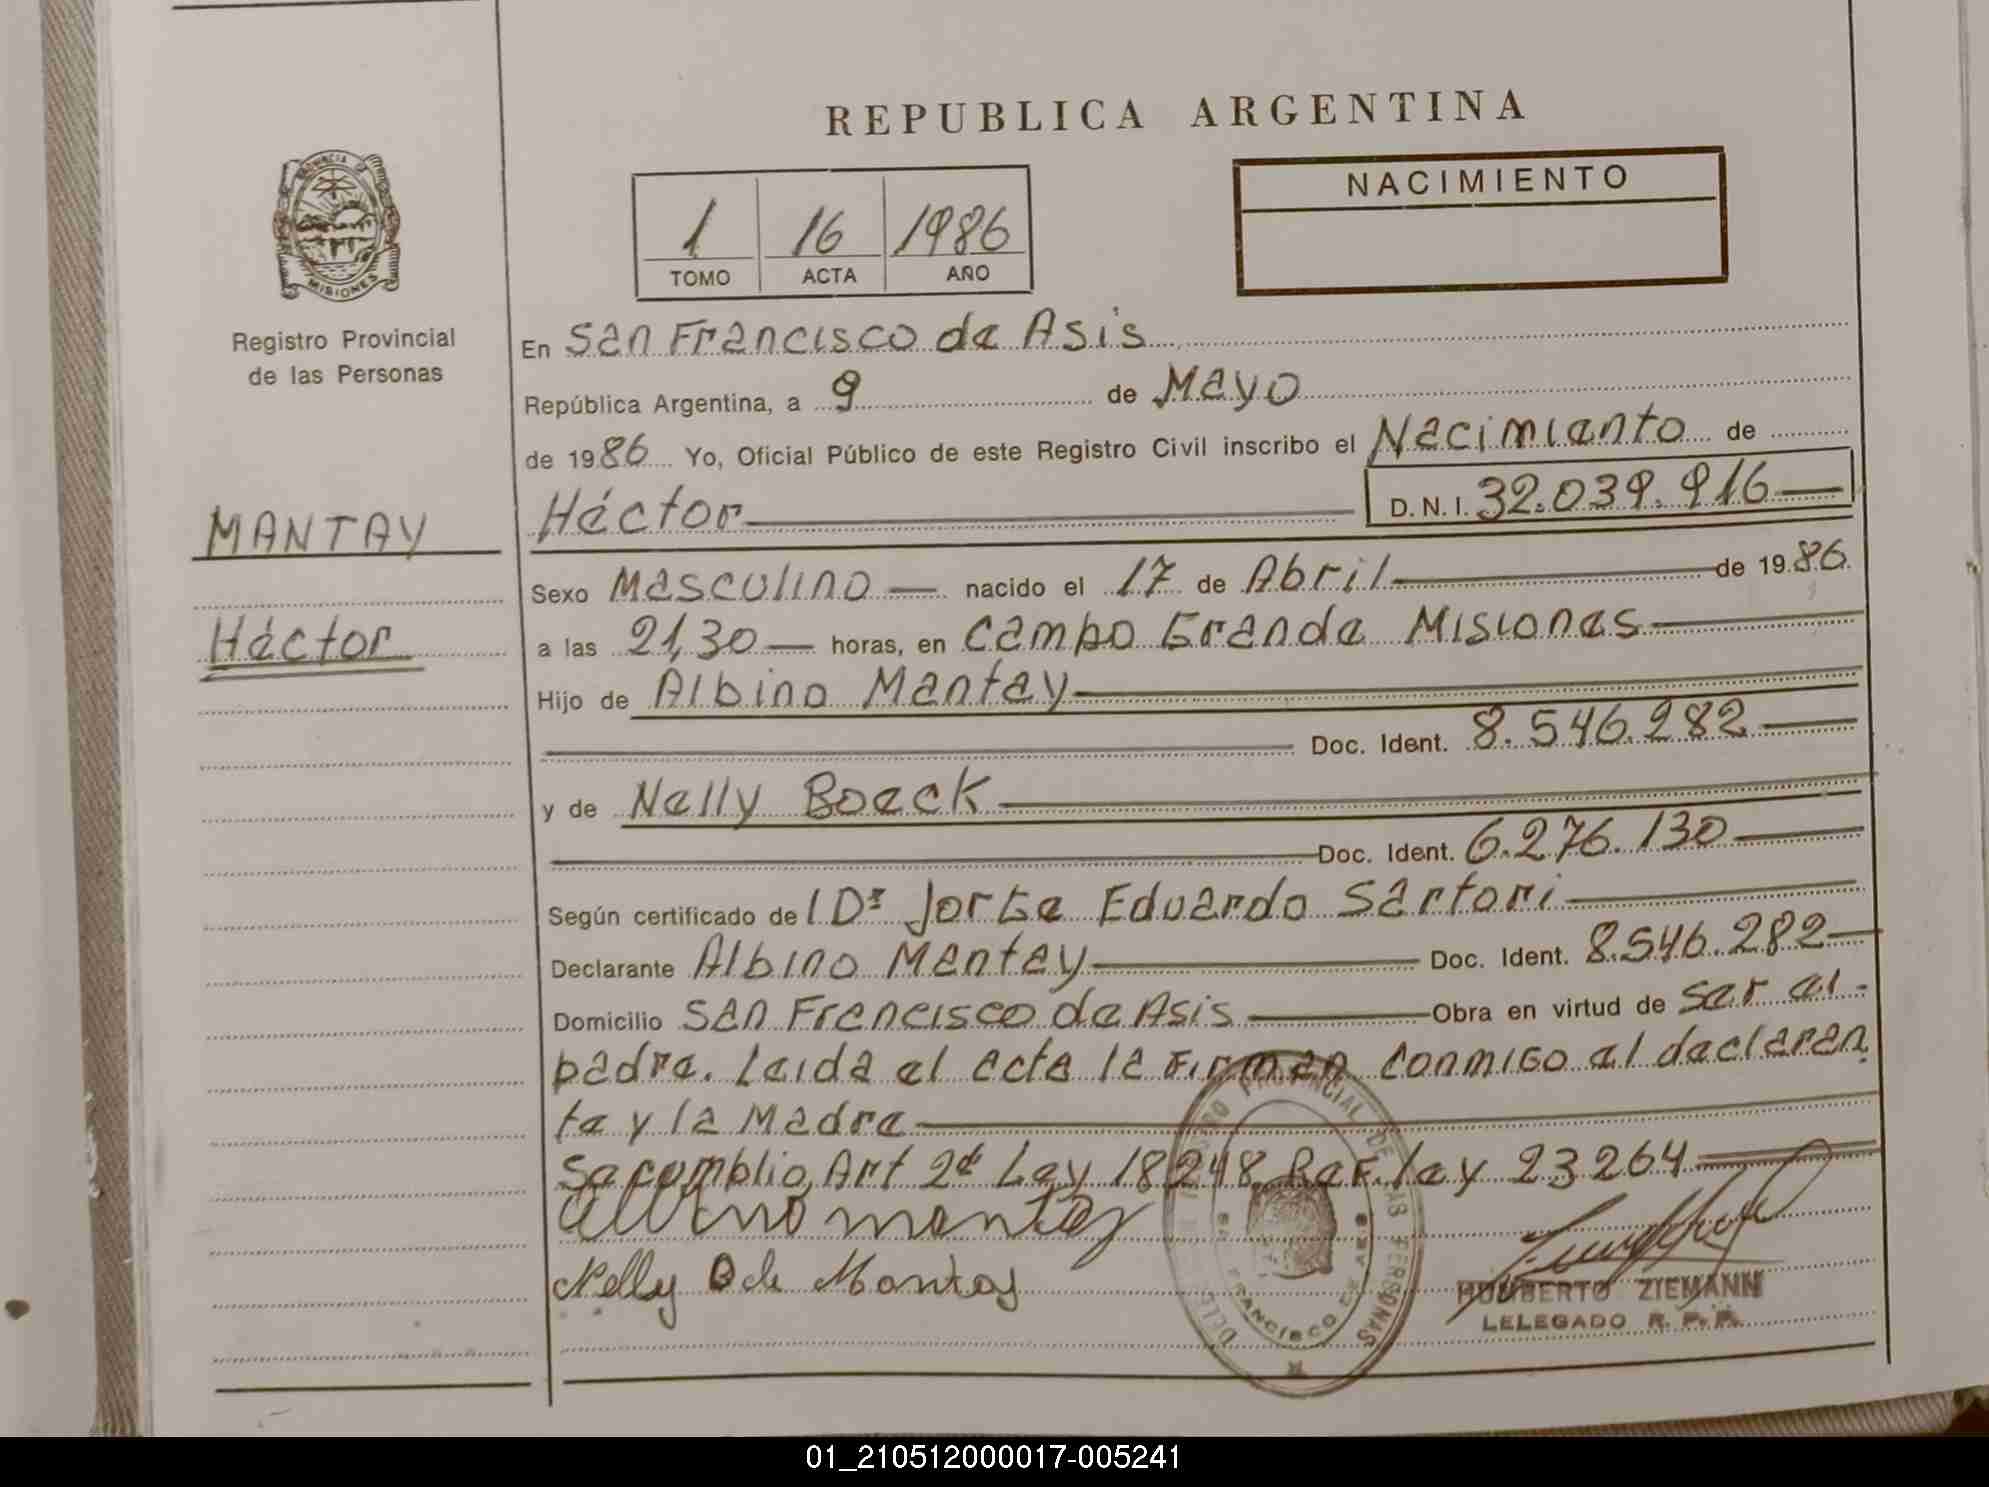 REPUBLICA ARGENTINA
PROVINCIA DE
MISIONES
Registro Provincial
de las Personas
MANTAY
Héctor
1 16 1986
TOMO ACTA AÑO
NACIMIENTO
En San Francisco de Asis
República Argentina, a 9 de Mayo
de 1986 Yo, Oficial Público de este Registro Civil inscribo el Nacimiento de
Héctor D. N. I. 32.039.916
Sexo Masculino nacido el 17 de Abril de 1986
a las 21,30 horas, en Campo Grande Misiones
Hijo de Albino Mantay
Doc. Ident. 8.546.282
y de Nelly Boeck
Doc. Ident. 6.276.130
Según certificado del Dr Jorge Eduardo Sartori
Declarante Albino Mantay Doc. Ident. 8.546.282
Domicilio San Francisco de Asis Obra en virtud de ser el
padre. Leida el acta la Firman conmigo el declaran
te y la Madre
Se complio Art 2d Ley 18248 Ref. ley 23264
Albino Mantay
Nelly B de Mantay
PROVINCIAL DE LAS PERSONAS
FRANCISCO DE ASIS
HUMBERTO ZIEMANN
LELEGADO R. P. P.
01_210512000017-005241